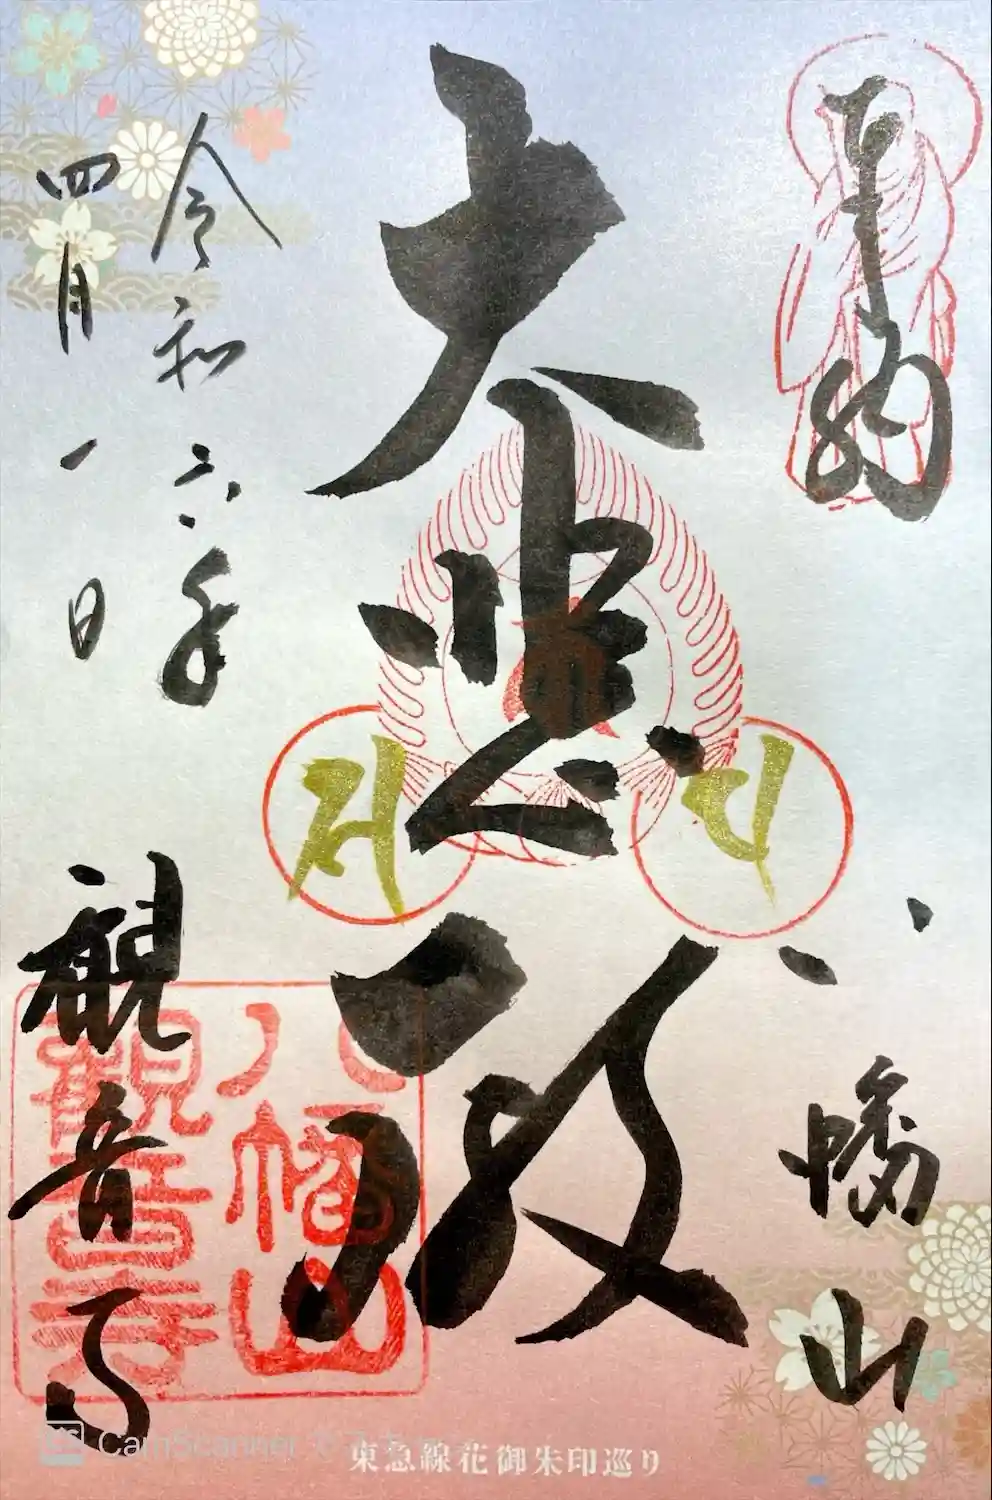 奉納
八幡山
大悲殿
令和六年
四月一日
観音寺
八幡山
観音寺
東急線花御朱印巡り
CamScanner